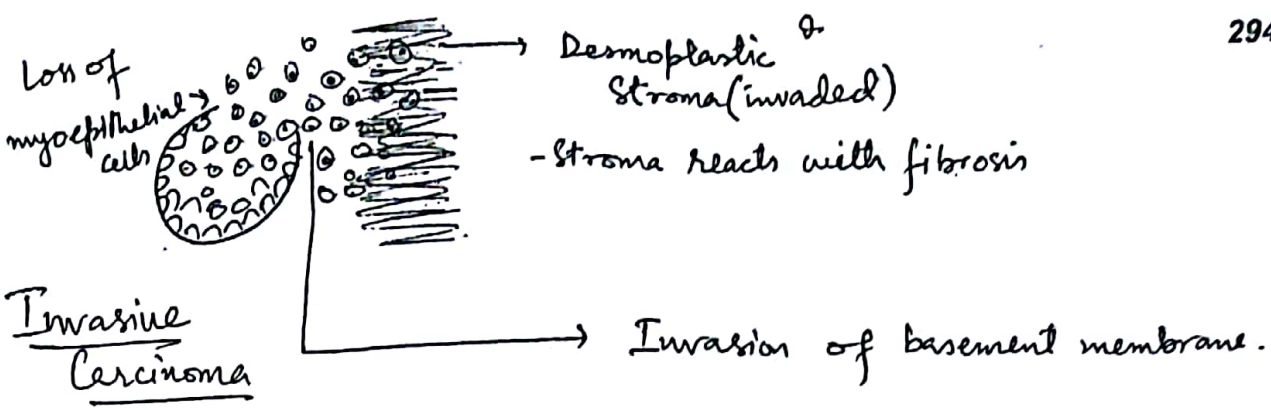 294
Loss of
myoepithelial
cells
Desmoplastic
Stroma (invaded)
- Stroma reacts with fibrosis
Invasive
Carcinoma
Invasion of basement membrane.